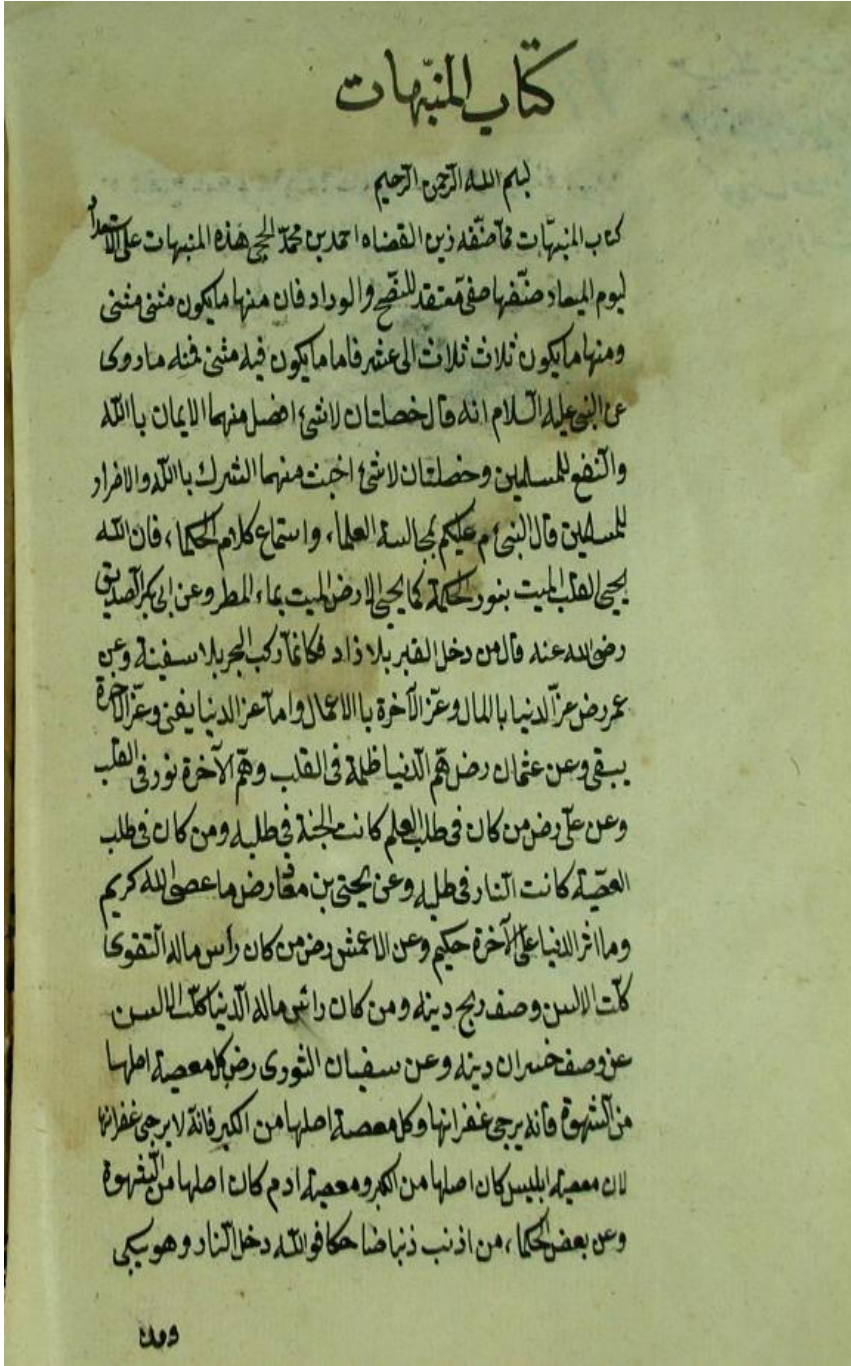 كتاب المنبّهات
بسم الله الرحمن الرحيم
كتاب المنبّهات ممّا صنّفه زين القضاه احمد بن محمّد الحجى هذه المنبهات على الاستعداد
ليوم الميعاد صنّفها صفى معتقد للنصح والوداد فان منها ما يكون مثنى مثنى
ومنها ما يكون ثلاث ثلاث الى عشر فاما ما يكون فيه مثنى فمنه ما روى
عن النبى عليه السّلام انه قال خصلتان لا شئ افضل منهما الايمان باالله
والنفع للمسلمين وخصلتان لا شئ اخبث منهما الشرك باالله والاضرار
للمسلمين قال النبى ءم عليكم بمجالسة العلماء واستماع كلام الحكماء فان الله
يحيى القلب الميت بنور الحكمة كما يحيى الارض الميت بماء المطر وعن ابى بكر الصديق
رضى الله عنه قال من دخل القبر بلا زاد فكانمّا ركب البحر بلا سفينة وعن
عمر رض عزّ الدنيا باالمال وعزّ الآخرة باالاعمال وامآ عز الدنيا يفنى وعزّ الآخرة
يبقى وعن عثمان رض همّ الدّنيا ظلمة فى القلب وهمّ الآخرة نور فى القلب
وعن علّى رض من كان فى طلب العلم كانت الجنة فى طلبه ومن كان فى طلب
العصيّة كانت النّار فى طلبه وعن يحيى بن معاذ رض ما عصى الله كريم
وما اثر الدنيا على الآخرة حكيم وعن الاعمش رض من كان رأس ماله التّقوى
كلّت الالسن وصف ربح دينه ومن كان رأس ماله الدّنيا كلّت الالسن
عن وصف خسران دينه وعن سفيان الثورى رض كل معصية اصلها
من الشّهوة فانه يرجى غفرانها وكل معصية اصلها من الكبر فانه لا يرجى غفرانها
لان معصية ابليس كان اصلها من الكبر ومعصية ادم كان اصلها من الشهوة
وعن بعض الحكماء من اذنب ذنبا ضاحكا فو الله دخل النّار وهو يبكى